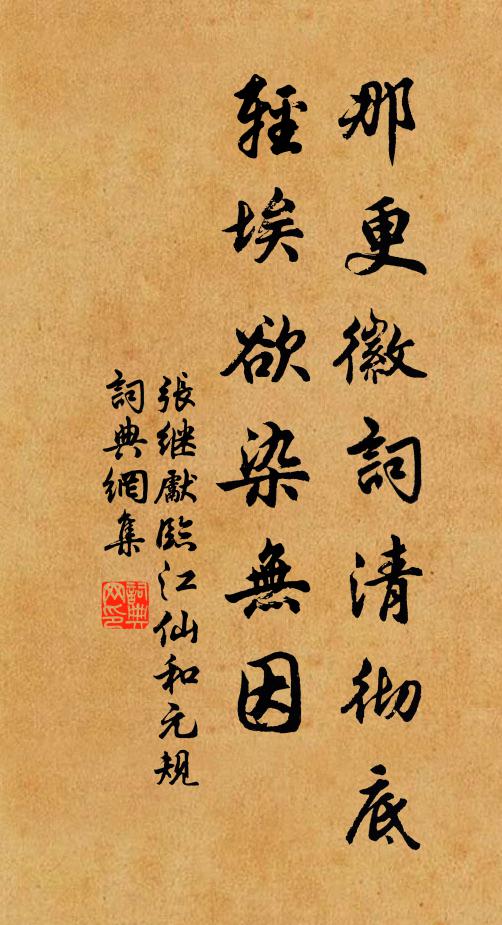 那更徽詞清彻底
輕埃欲染無因
張继獻臨江仙和元规
詞典網集
詞典网印